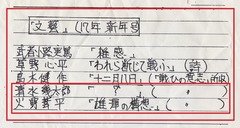 「文藝」(17年 新年号)
武者小路実篤 「雑感」
草野心平 「われら断じて戦ふ」(詩)
島木健作 「十二月八日」(「戦ひの意志」所収)
清水幾太郎 「〃」(〃)
火野葦平 「雄渾の構想」(〃)